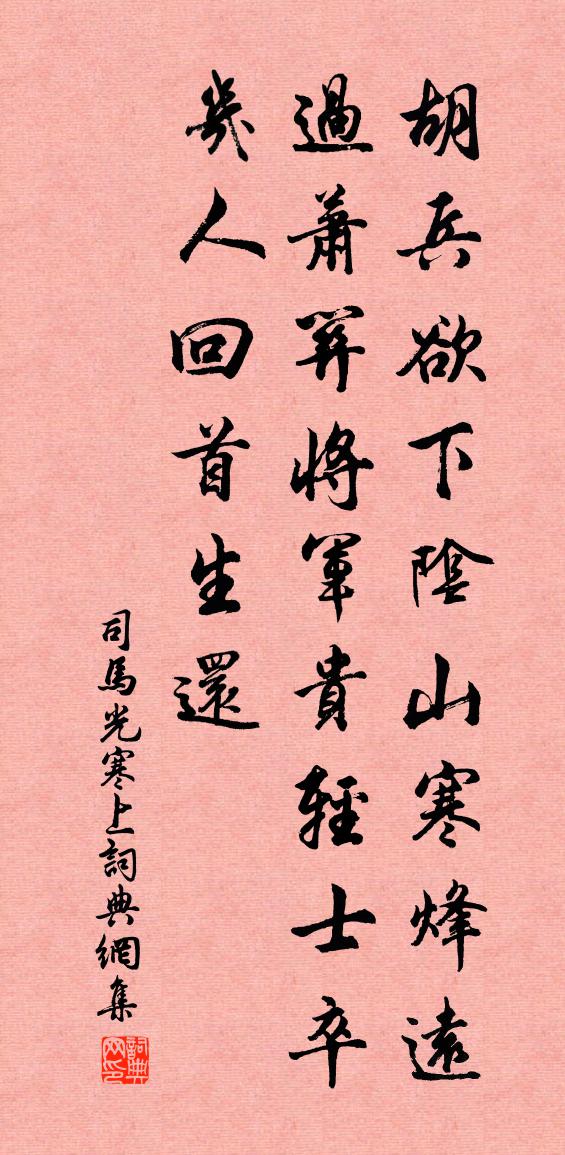 胡兵欲下陰山寒烽遠
過蕭關將軍貴輕士卒
幾人回首生還
司馬光塞上詞典網集
詞典网印